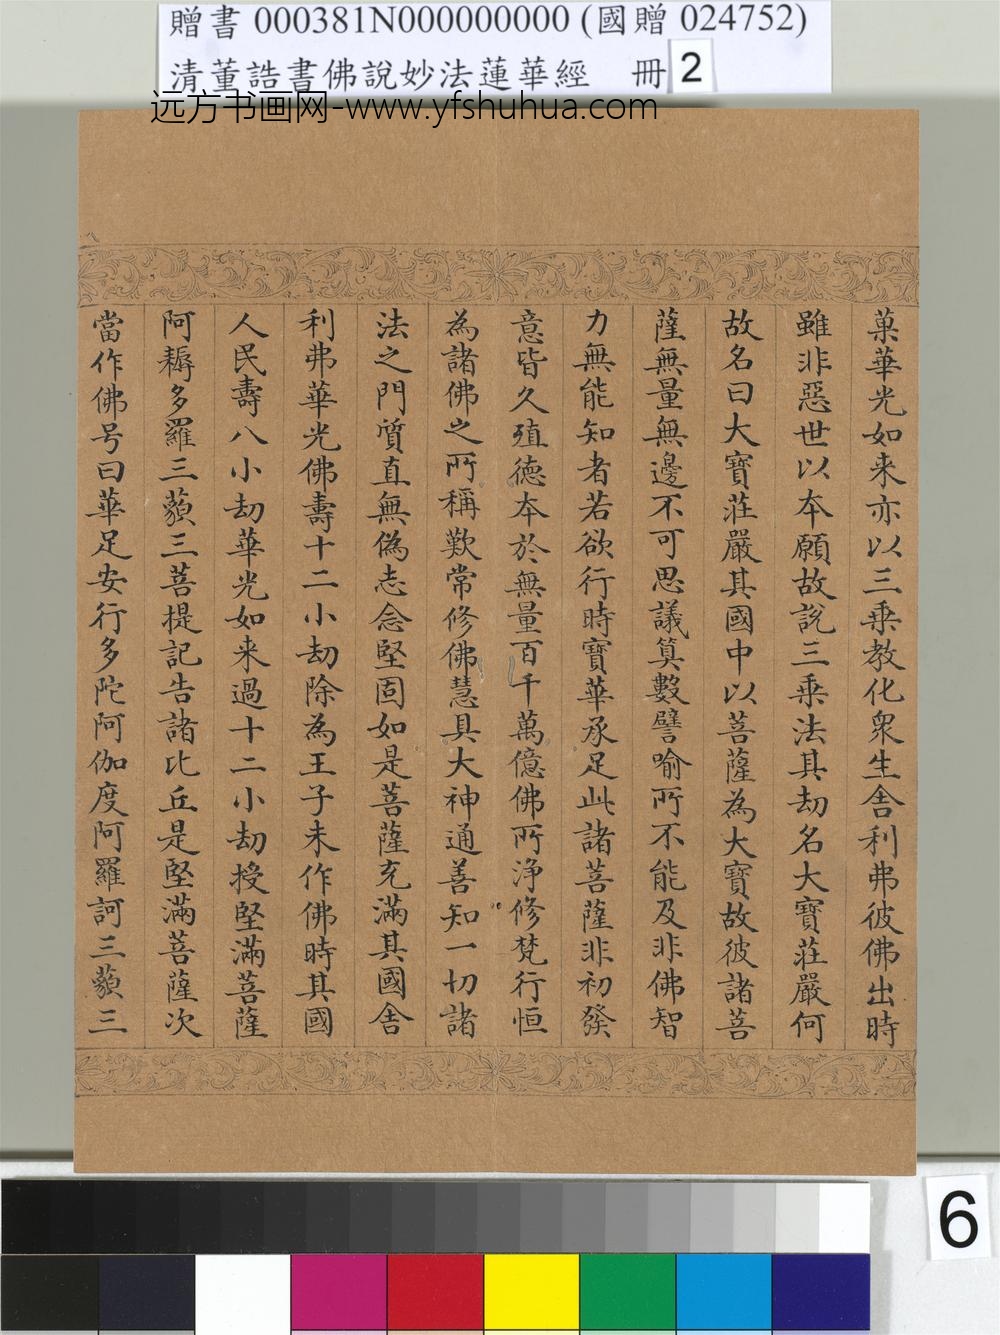 贈書 000381N000000000 (國贈 024752)
清董誥書佛說妙法蓮華經 冊 2
远方书画网-www.yfshuhua.com
菓華光如来亦以三乗教化衆生舎利弗彼佛出時
雖非惡世以本願故說三乗法其劫名大寶莊嚴何
故名曰大寶莊嚴其國中以菩薩為大寶故彼諸菩
薩無量無邊不可思議算數譬喻所不能及非佛智
力無能知者若欲行時寶華承足此諸菩薩非初發
意皆久殖德本於無量百千萬億佛所淨修梵行恒
為諸佛之所稱歎常修佛慧具大神通善知一切諸
法之門質直無偽志念堅固如是菩薩充滿其國舎
利弗華光佛壽十二小劫除為王子未作佛時其國
人民壽八小劫華光如来過十二小劫授堅滿菩薩
阿耨多羅三藐三菩提記告諸比丘是堅滿菩薩次
當作佛号曰華足安行多陀阿伽度阿羅訶三藐三
6